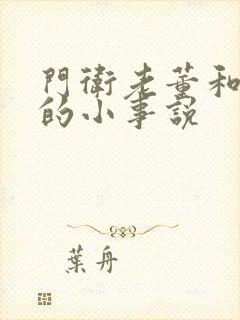 門衛老董和
的小事說
葉舟